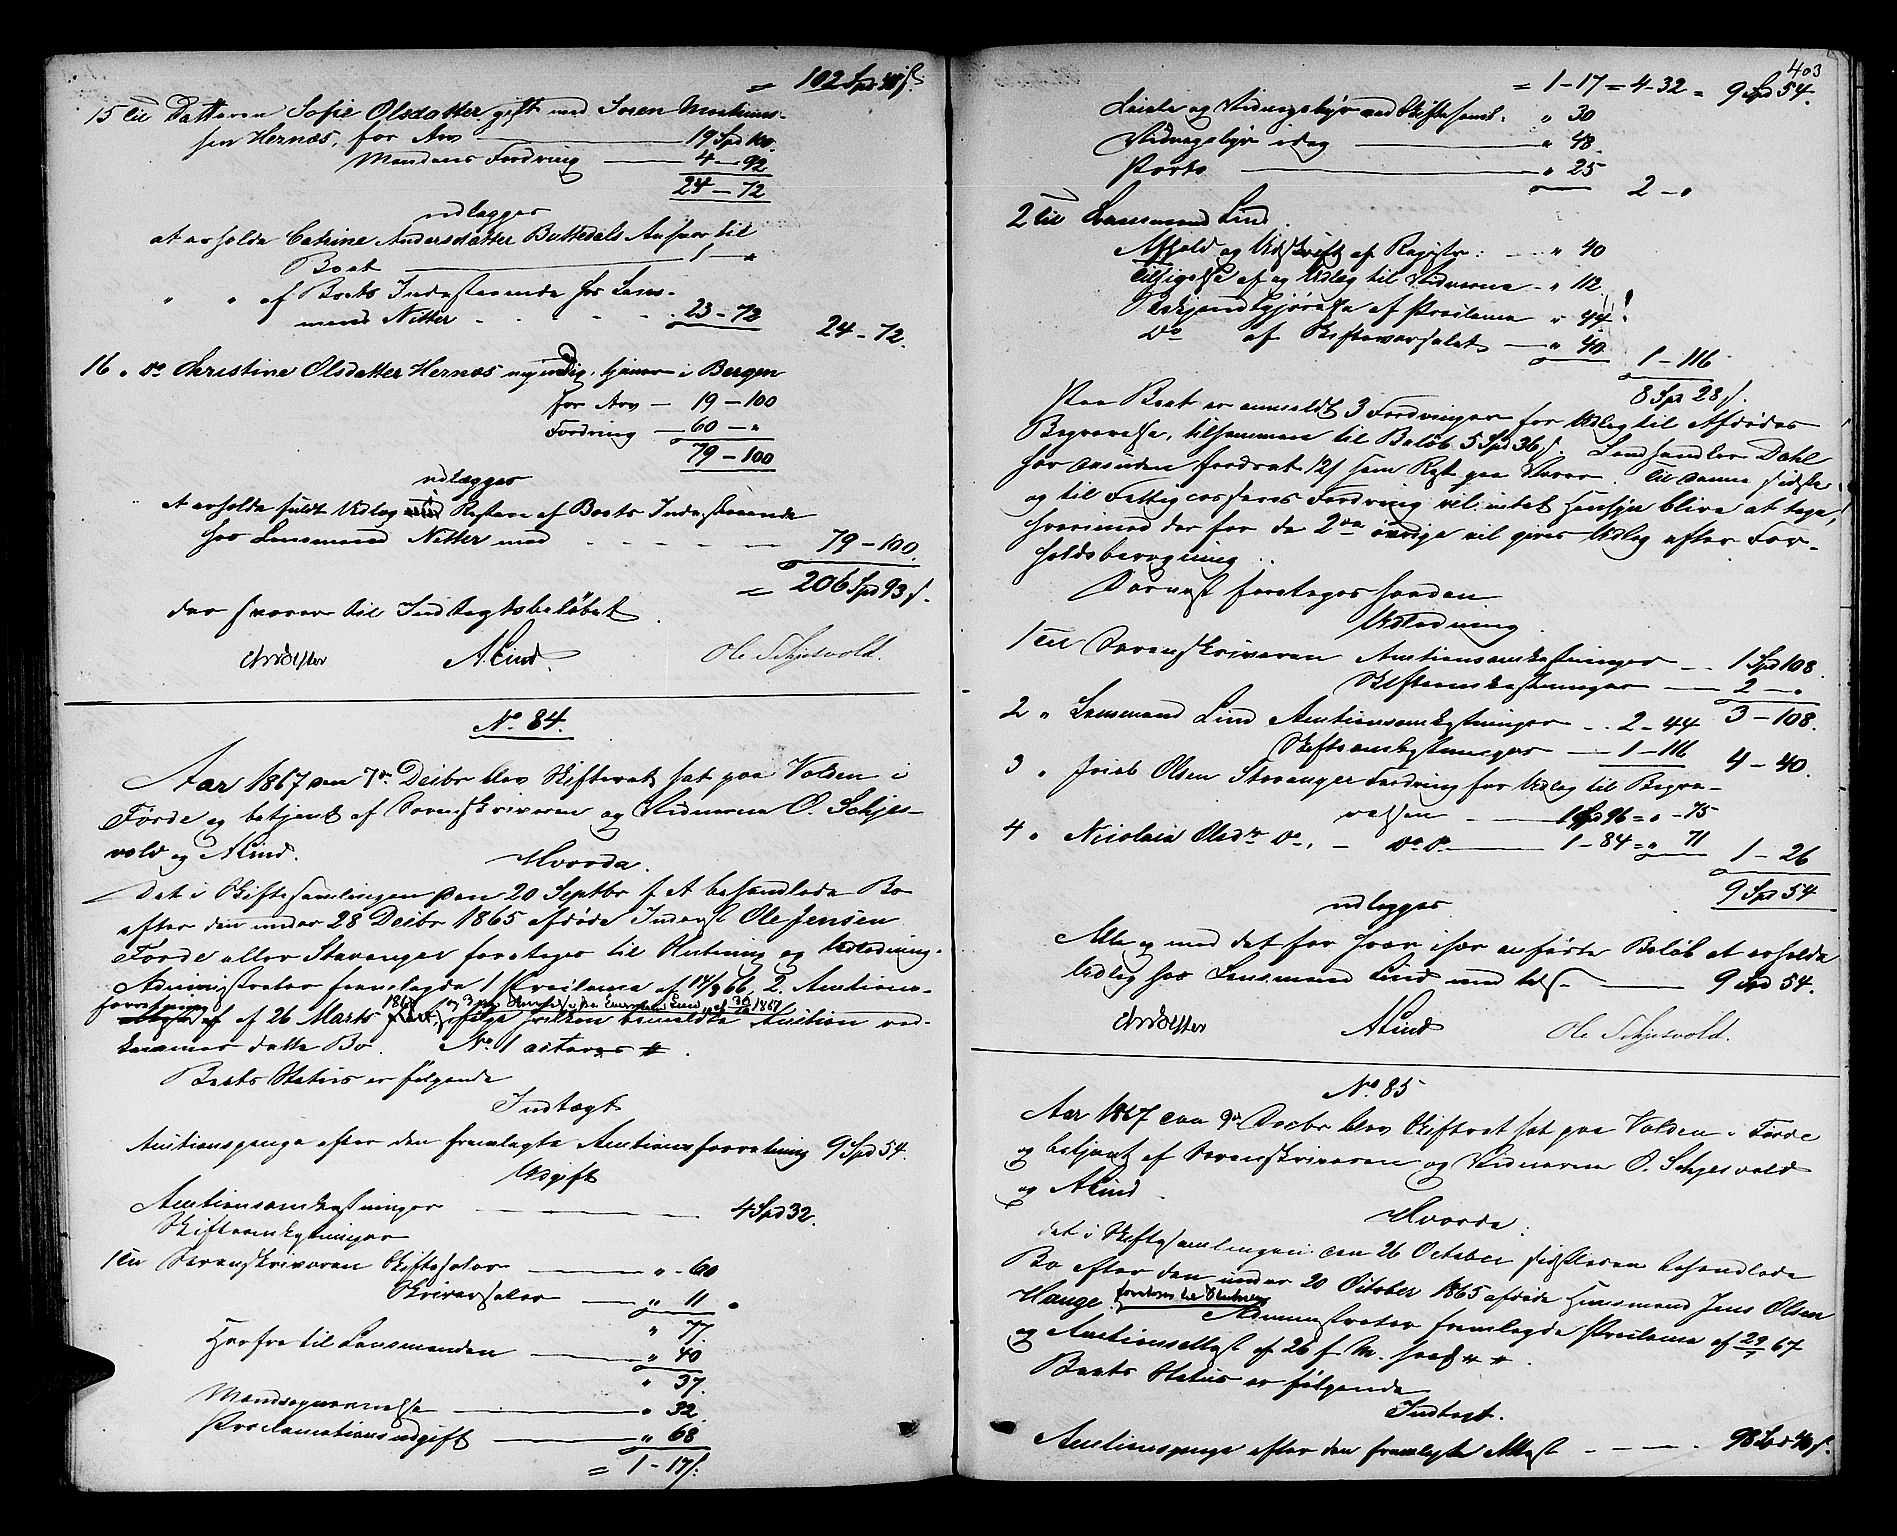 = 102 Spd 48 s
15 til Datteren Sofie Olsdatter gift med Søren Martinus-
sen Hernæs, for Arv — 19 Spd 100.
Mandens Fordring — 4 - 92
24 - 72
udlægges
at erholde Catrine Andersdatter Buttedals Ansvar til
Boet — 1 - "
" " af Boets Indestaaende hos Lens-
mand Nitter - - - - 23 - 72
24 - 72.
16 " do Christine Olsdatter Hernæs myndig, tjener i Bergen
for Arv — 19 - 100
Fordring — 60 - "
79 - 100
udlægges
at erholde fuldt Udlæg Resten af Boets Indestaaende
hos Lensmand Nitter med - - - - 79 - 100.
= 206 Spd 93 s.
der svarer til Indtægtsbeløbet.
A Lind. Ole Schjesvold.
No 84.
Aar 1867 den 7de Decbr blev Skifteret sat paa Volden i
Førde og betjent af Sorenskriveren og Vidnerne O. Schjes-
vold og A Lind.
Hvorda
Det i Skiftesamlingen den 20 Septbr f A behandlede Bo
efter den under 28 Decbr 1865 afdøde Inderst Ole Jensen
Førde eller Stavanger foretages til Slutning og Udlodning.
Administrator fremlagde 1 Proclama af 14/3 66, 2. Auctions-
forretning af 26 Marts 1867 følge hvilken anmeldte Auction ved-
kommer dette Bo. No 1 acteres #.
Boets Status er følgende
Indtægt
Auctionspenge efter den fremlagte Auctionsforretning 9 Spd 54.
Udgift
Auctionsomkostninger — 4 Spd 32.
Skifteomkostninger
1 til Sorenskriveren Skiftesalær — " - 60
Skriversalær — " 11
" 77.
Herfra til Lensmanden — " 40
" 37.
Mandsopnævnelse — " 32.
Proclamationsudgift — " 68
= 1 - 17 s:
403
= 1 - 17 = 4 - 32 = 9 Spd 54.
Leie og Vidnegebyr ved Skiftesaml. " 30
Vidnegebyr idag — " 48.
Porto — " 25
2 - "
2 til Lensmand Lind.
Afhold og Udskrift af Registr: — " 40
Tilsigelse af og Udlæg til Vidnerne - " 112
Bekjendtgjørelse af Proclama " 44.
Do af Skiftevarselet — " 40
1 - 116
8 Spd 28 s.
Paa Boet er anmeldt 3 Fordringer for Udlæg til Afdødes
Begravelse, tilsammen til Beløb 5 Spd 36 s. Landhandler Dahl
har desuden fordret 12 s som Rest paa Varer. Til denne sidste
og til Fattigcassens Fordring vil intet Hensyn blive at tage,
hvorimod der for de 2de øvrige vil gives Udlæg efter For-
holdsberegning.
Dernæst foretages saadan
Udlodning
1 til Sorenskriveren Auctionsomkostninger — 1 Spd 108.
Skifteomkostninger — 2 - "
3 - 108.
2 " Lensmand Lind Auctionsomkostninger - . 2 - 44
Skifteomkostninger — 1 - 116 4 - 40.
3 " Jacob Olsen Stavanger Fordring for Udlæg til Begra-
velsen — 1 Spd 96 = " - 75
4 " Nicolai Olsdr do, - do do — 1 - 84 = " 71
1 - 26
9 Spd 54
udlægges
Alle og med det for hver især anførte Beløb at erholde
Udlæg hos Lensmand Lind med tils. — 9 Spd 54.
A Lind Ole Schjesvold.
No 85
Aar 1867 den 9de Decbr blev Skifteret sat paa Volden i Førde
og betjent af Sorenskriveren og Vidnerne O. Schjesvold
og A Lind.
Hvorda.
det i Skiftesamlingen den 26 October sidstleden behandlede
Bo efter den under 20 October 1865 afdøde Huusmand Jens Olsen
Hauge foretoges til Slutning
Administrator fremlagde Proclama af 29/7 67
og Auctionsattest af 26 f M. hvoraf # #.
Boets Status er følgende
Indtægt.
Auctionspenge efter den fremlagte Attest - - - - . 98 Spd 40 s.